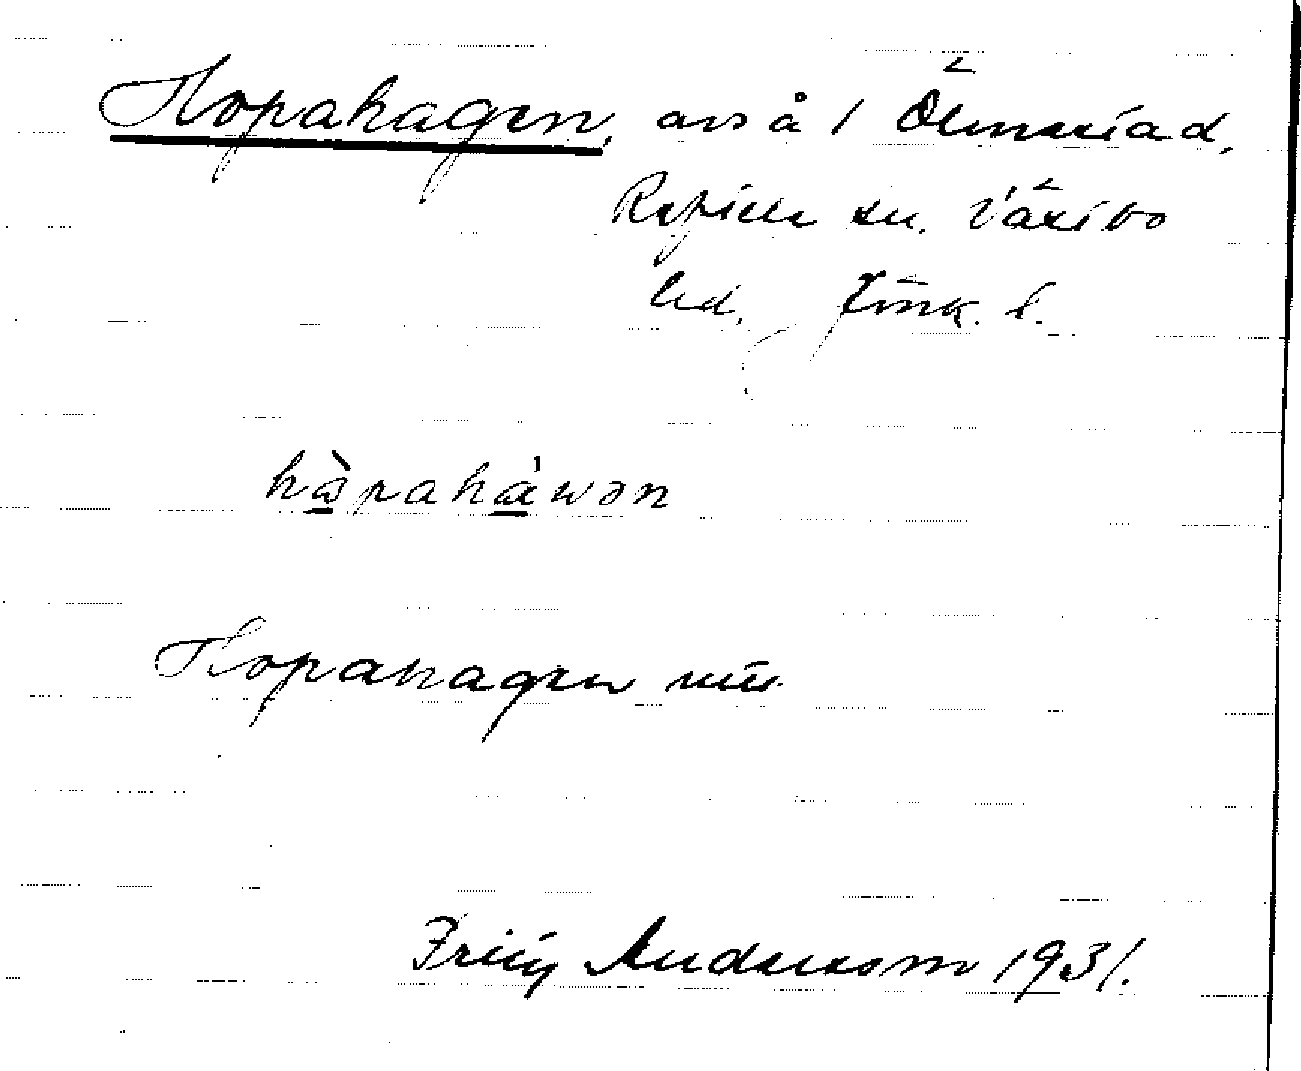 Hopahagen, avs å 1 Ölmestad,
Reftele sn. Västbo
hd, Jönk. l.
hàpaháwən
Hopahagen
Fritz Andersson 1931.